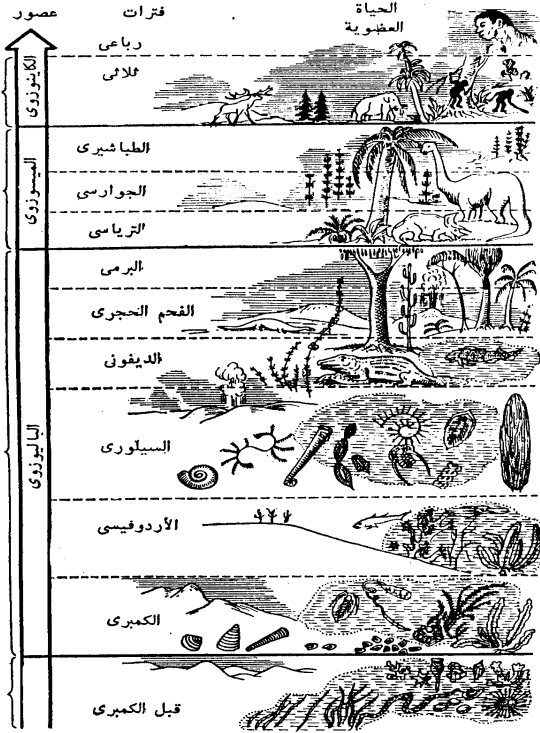 عصور
فترات
الحياة
العضوية
الكاينوزوى
رباعى
ثلاثى
الميسوزوى
الطباشيرى
الجوارسى
الترياسى
الباليوزوى
البرمى
الفحم الحجرى
الديفونى
السيلورى
الأردوفيسى
الكمبرى
قبل الكمبرى